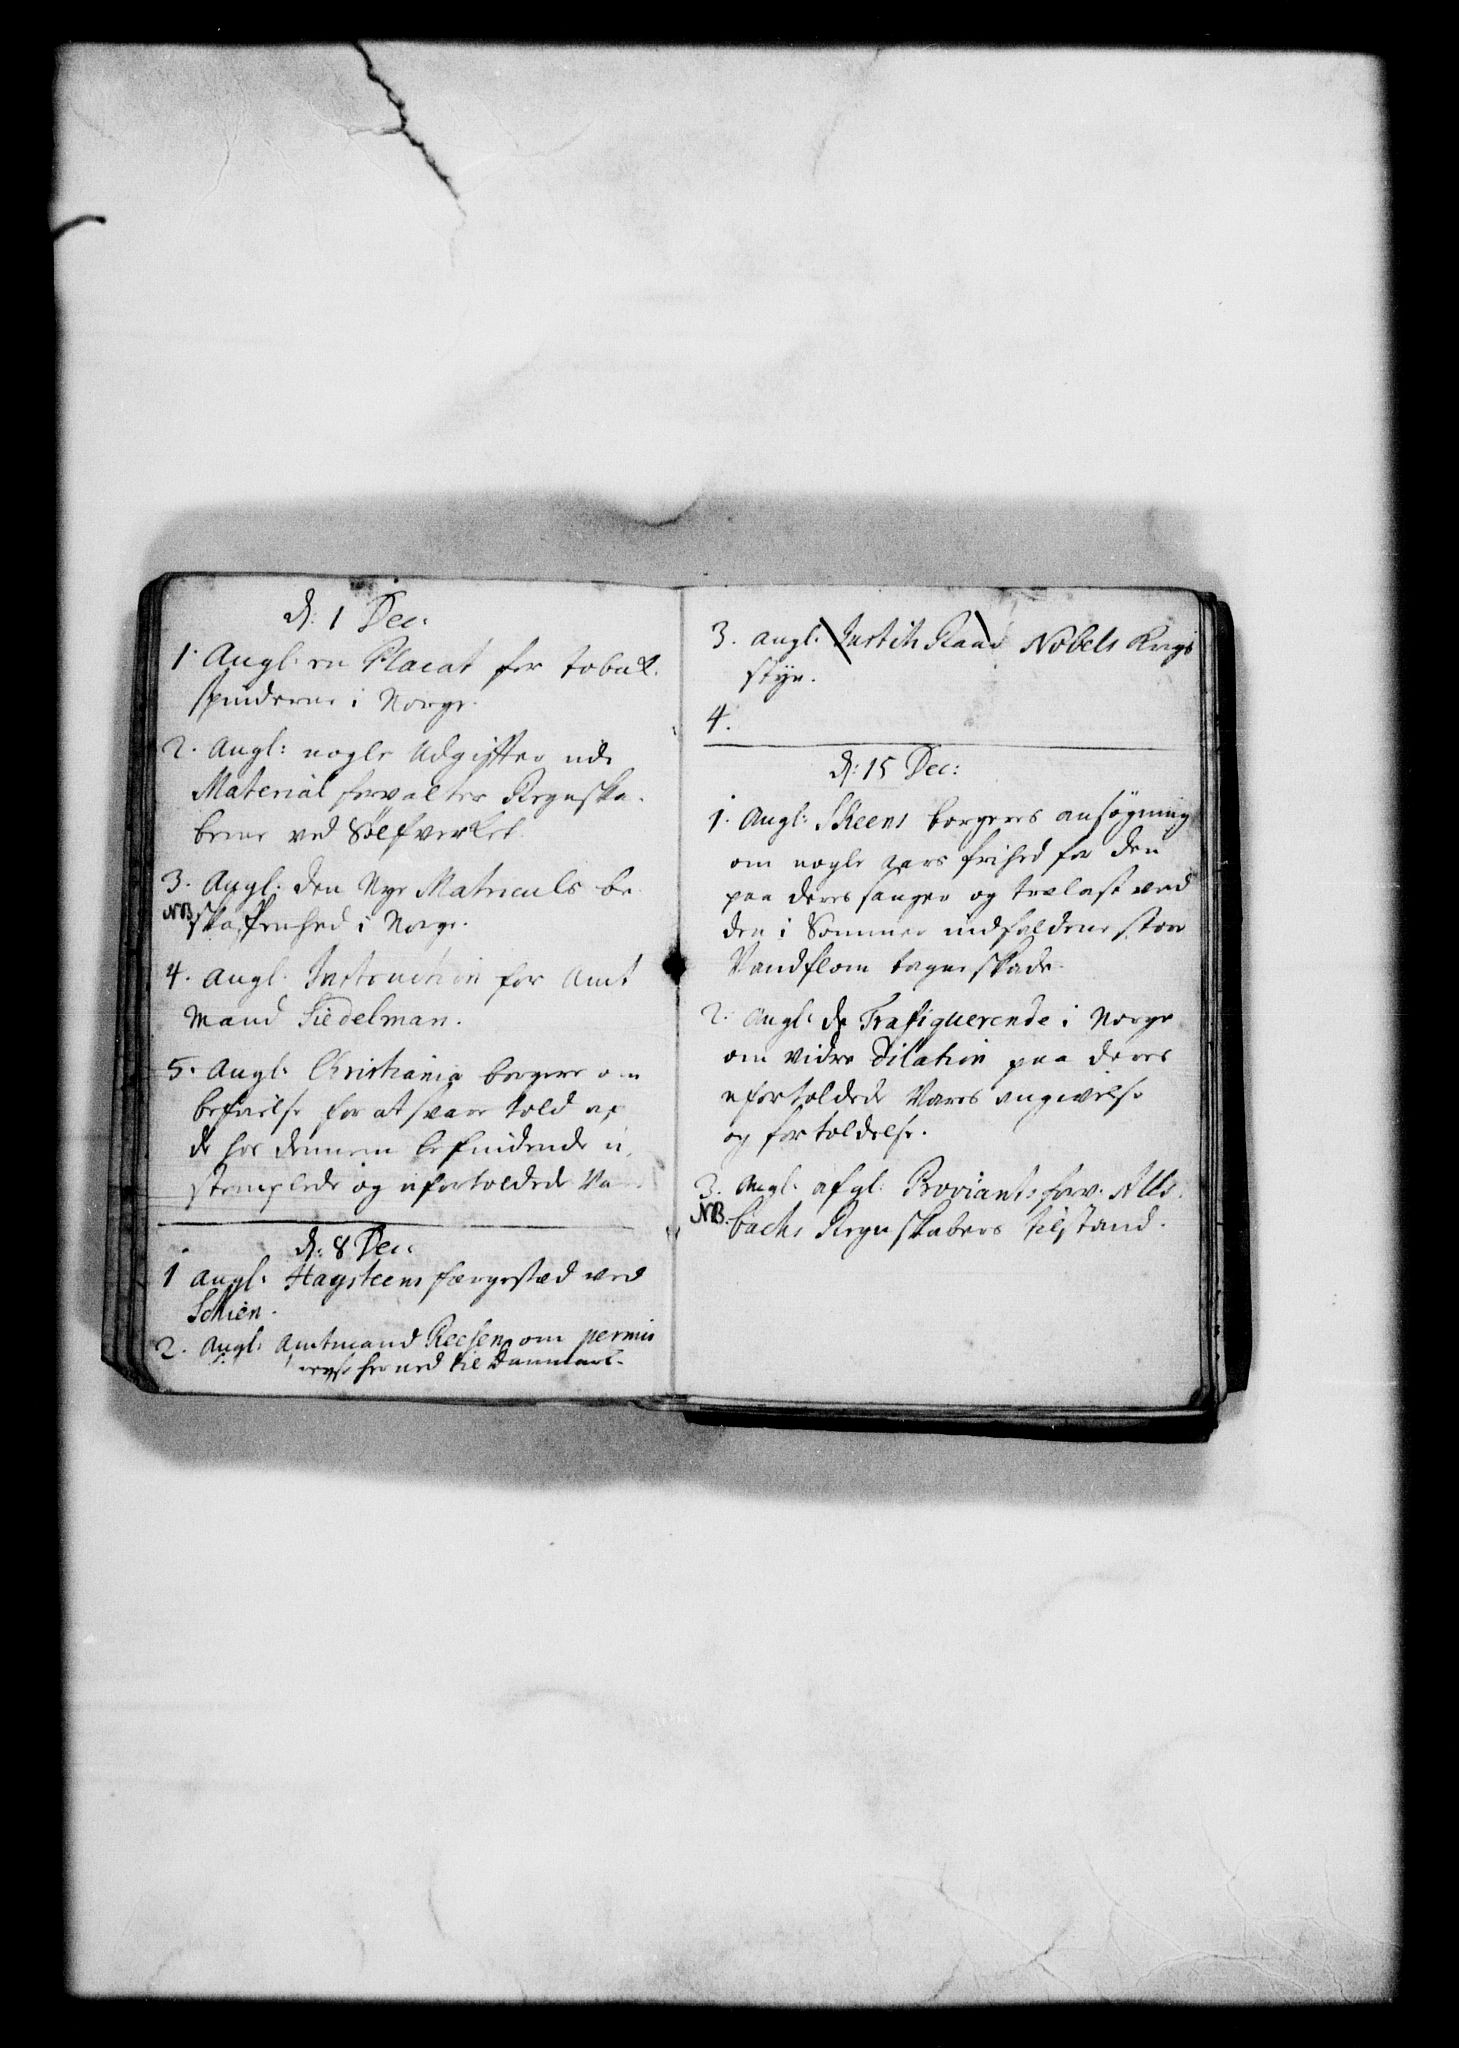 d: 1 Dec:
1. Angl: en Placat for tobak
spinderne i Norge.
2. Angl: nogle Udgiffter udi
Material forvalter Regnska-
berne ved Sølfverket
3. Angl. den Nye Matriculs be-
NB skaffenhed i Norge.
4. Angl. Instruction for Amt
Mand Tiedelman.
5. Angl. Christiania borgere om
befrielse for at svare told af
de hos dennem befindende u-
stemplede og ufortoldede Va
d: 8 Dec:
1 Angl: Haysteens færgestæd ved
Schien.
2. Angl: Amtmand Reesen om permis
reyse her ned til Danmark.
3. Angl: Justits Raad Nobels
4.
d: 15 Dec:
1. Angl: Skeens borgeres ansøgning
om nogle aars frihed for den
paa deres sauger og trælast ved
den i Sommer indfaldene store
Vandflom tagne skade.
2. Angl: de Trafiquerende i Norge
om vidre Dilation paa deres
ufortoldede Vares angivelse
og fortoldelse.
3. Angl. afgl: Proviantsforv. Alls-
NB. bachs Regnskabers tilstand.